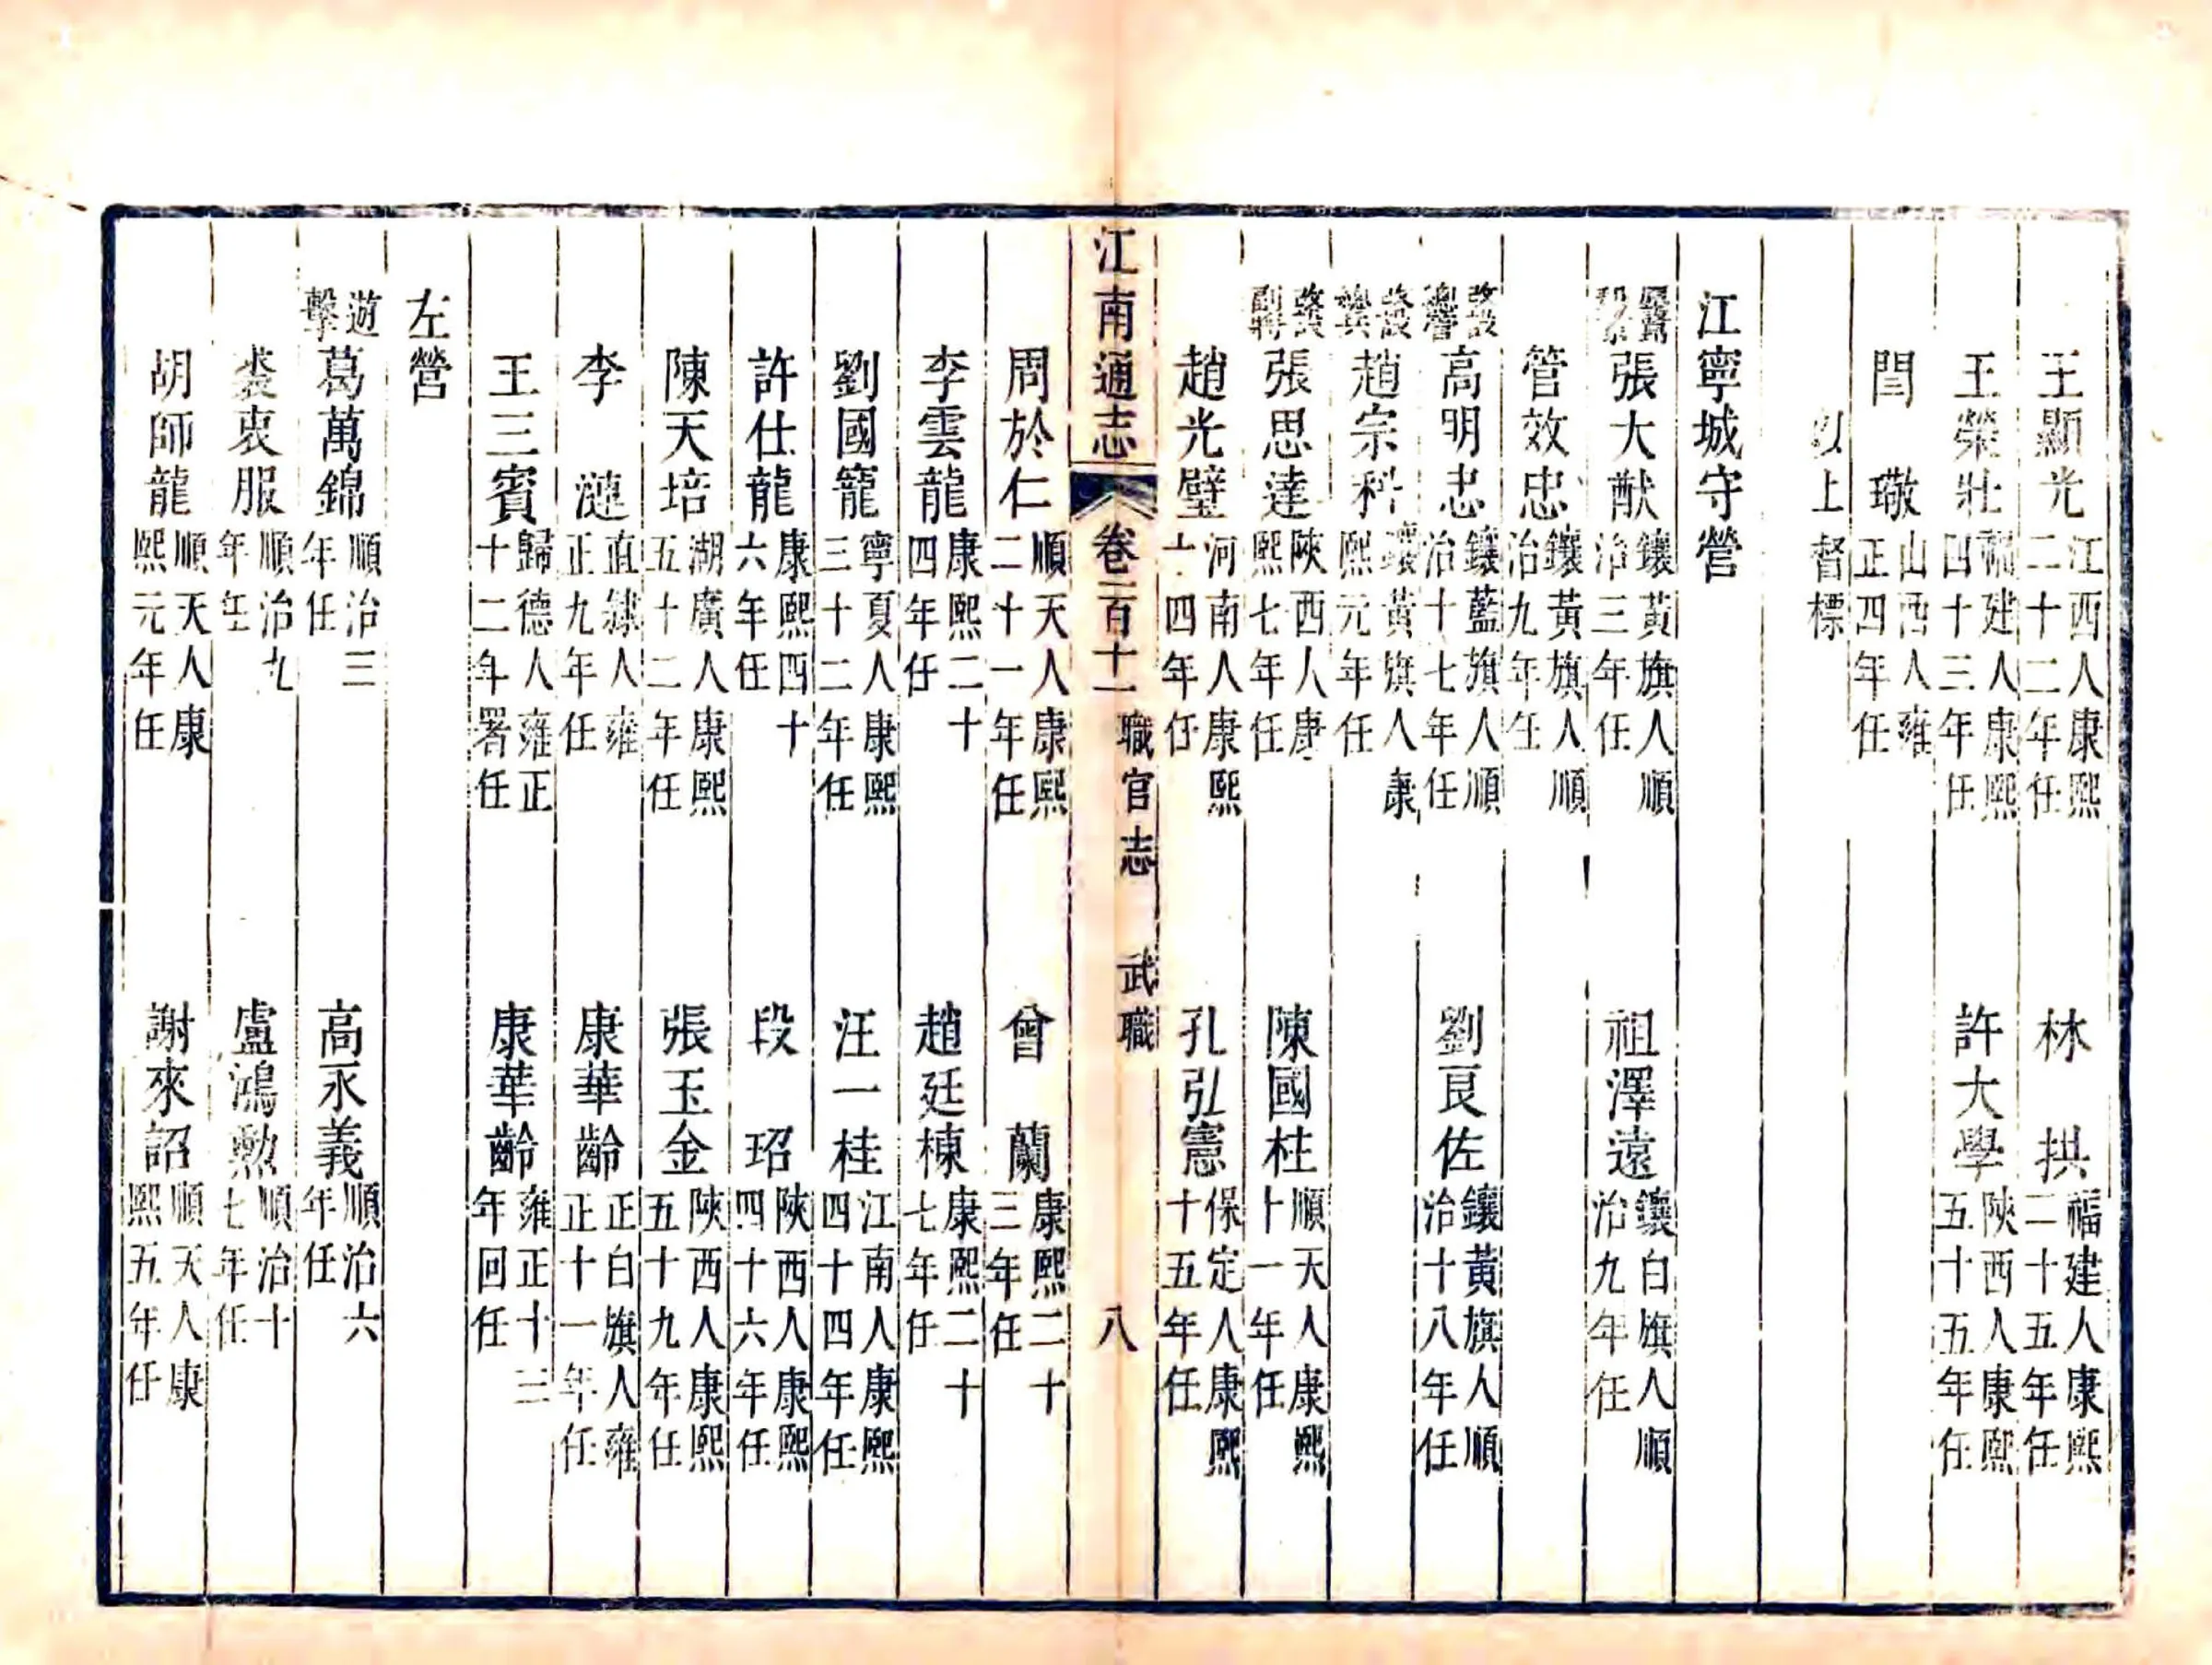 王顯光江西人康熙二十二年任 林 拱福建人康熙二十五年任
王榮壯福建人康熙四十三年任 許大學陝西人康熙五十五年任
閆 璥山西人雍正四年任
以上督標
江寧城守營
張大猷鑲黃旗人順治三年任 祖澤遠鑲白旗人順治九年任
管效忠鑲黃旗人順治九年任
高明忠鑲藍旗人順治十七年任 劉良佐鑲黃旗人順治十八年任
改設 趙宗科鑲黃旗人康熙元年任
改設副將 張思達陝西人康熙七年任 陳國柱順天人康熙十一年任
趙光璧河南人康熙十四年任 孔弘憲保定人康熙十五年任
江南通志 卷一百十一 職官志 武職 八
周於仁順天人康熙二十一年任 曾 蘭康熙二十三年任
李雲龍康熙二十四年任 趙廷棟康熙二十七年任
劉國寵寧夏人康熙三十二年任 汪一桂江南人康熙四十四年任
許仕龍康熙四十六年任 段 玿陝西人康熙四十六年任
陳天培湖廣人康熙五十二年任 張玉金陝西人康熙五十九年任
李 漣直隸人雍正九年任 康華齡正白旗人雍正十一年任
王三賓歸德人雍正十二年署任 康華齡雍正十三年回任
左營
遊擊 葛萬錦順治三年任 高永義順治六年任
裘衷服順治九年任 盧鴻勲順治十七年任
胡師龍順天人康熙元年任 謝來詔順天人康熙五年任